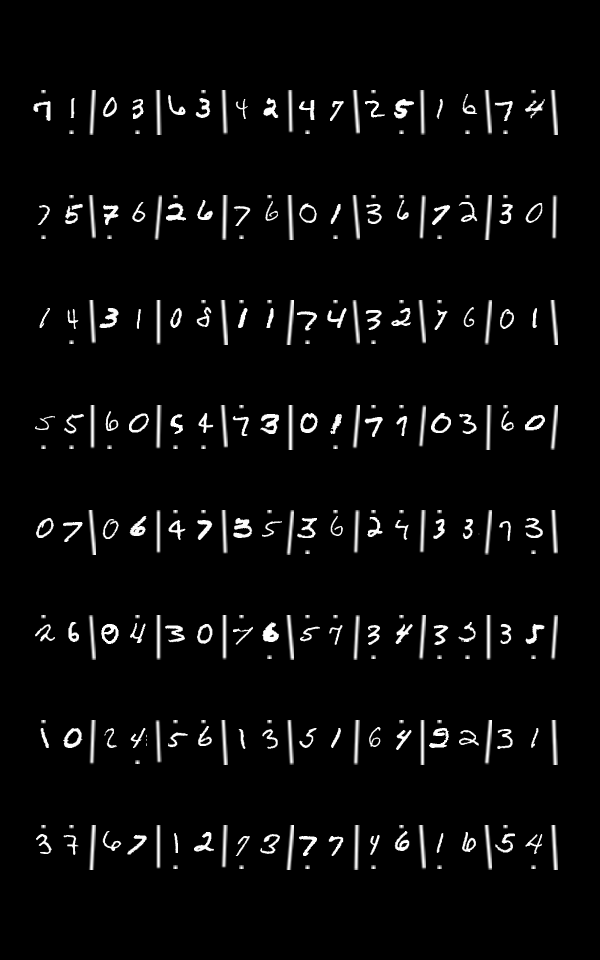 7 1 | 0 3 | 6 3 | 4 2 | 4 7 | 2 5 | 1 6 | 7 4 |
7 5 | 7 6 | 2 6 | 7 6 | 0 1 | 3 6 | 7 2 | 3 0 |
1 4 | 3 1 | 0 8 | 1 1 | 7 4 | 3 2 | 7 6 | 0 1 |
5 5 | 6 0 | 5 4 | 7 3 | 0 1 | 7 1 | 0 3 | 6 0 |
0 7 | 0 6 | 4 7 | 3 5 | 3 6 | 2 4 | 3 3 | 7 3 |
2 6 | 0 4 | 3 0 | 7 6 | 5 7 | 3 4 | 3 5 | 3 5 |
1 0 | 2 4 | 5 6 | 1 3 | 5 1 | 6 4 | 2 2 | 3 1 |
3 7 | 6 7 | 1 2 | 7 3 | 7 7 | 4 6 | 1 6 | 5 4 |